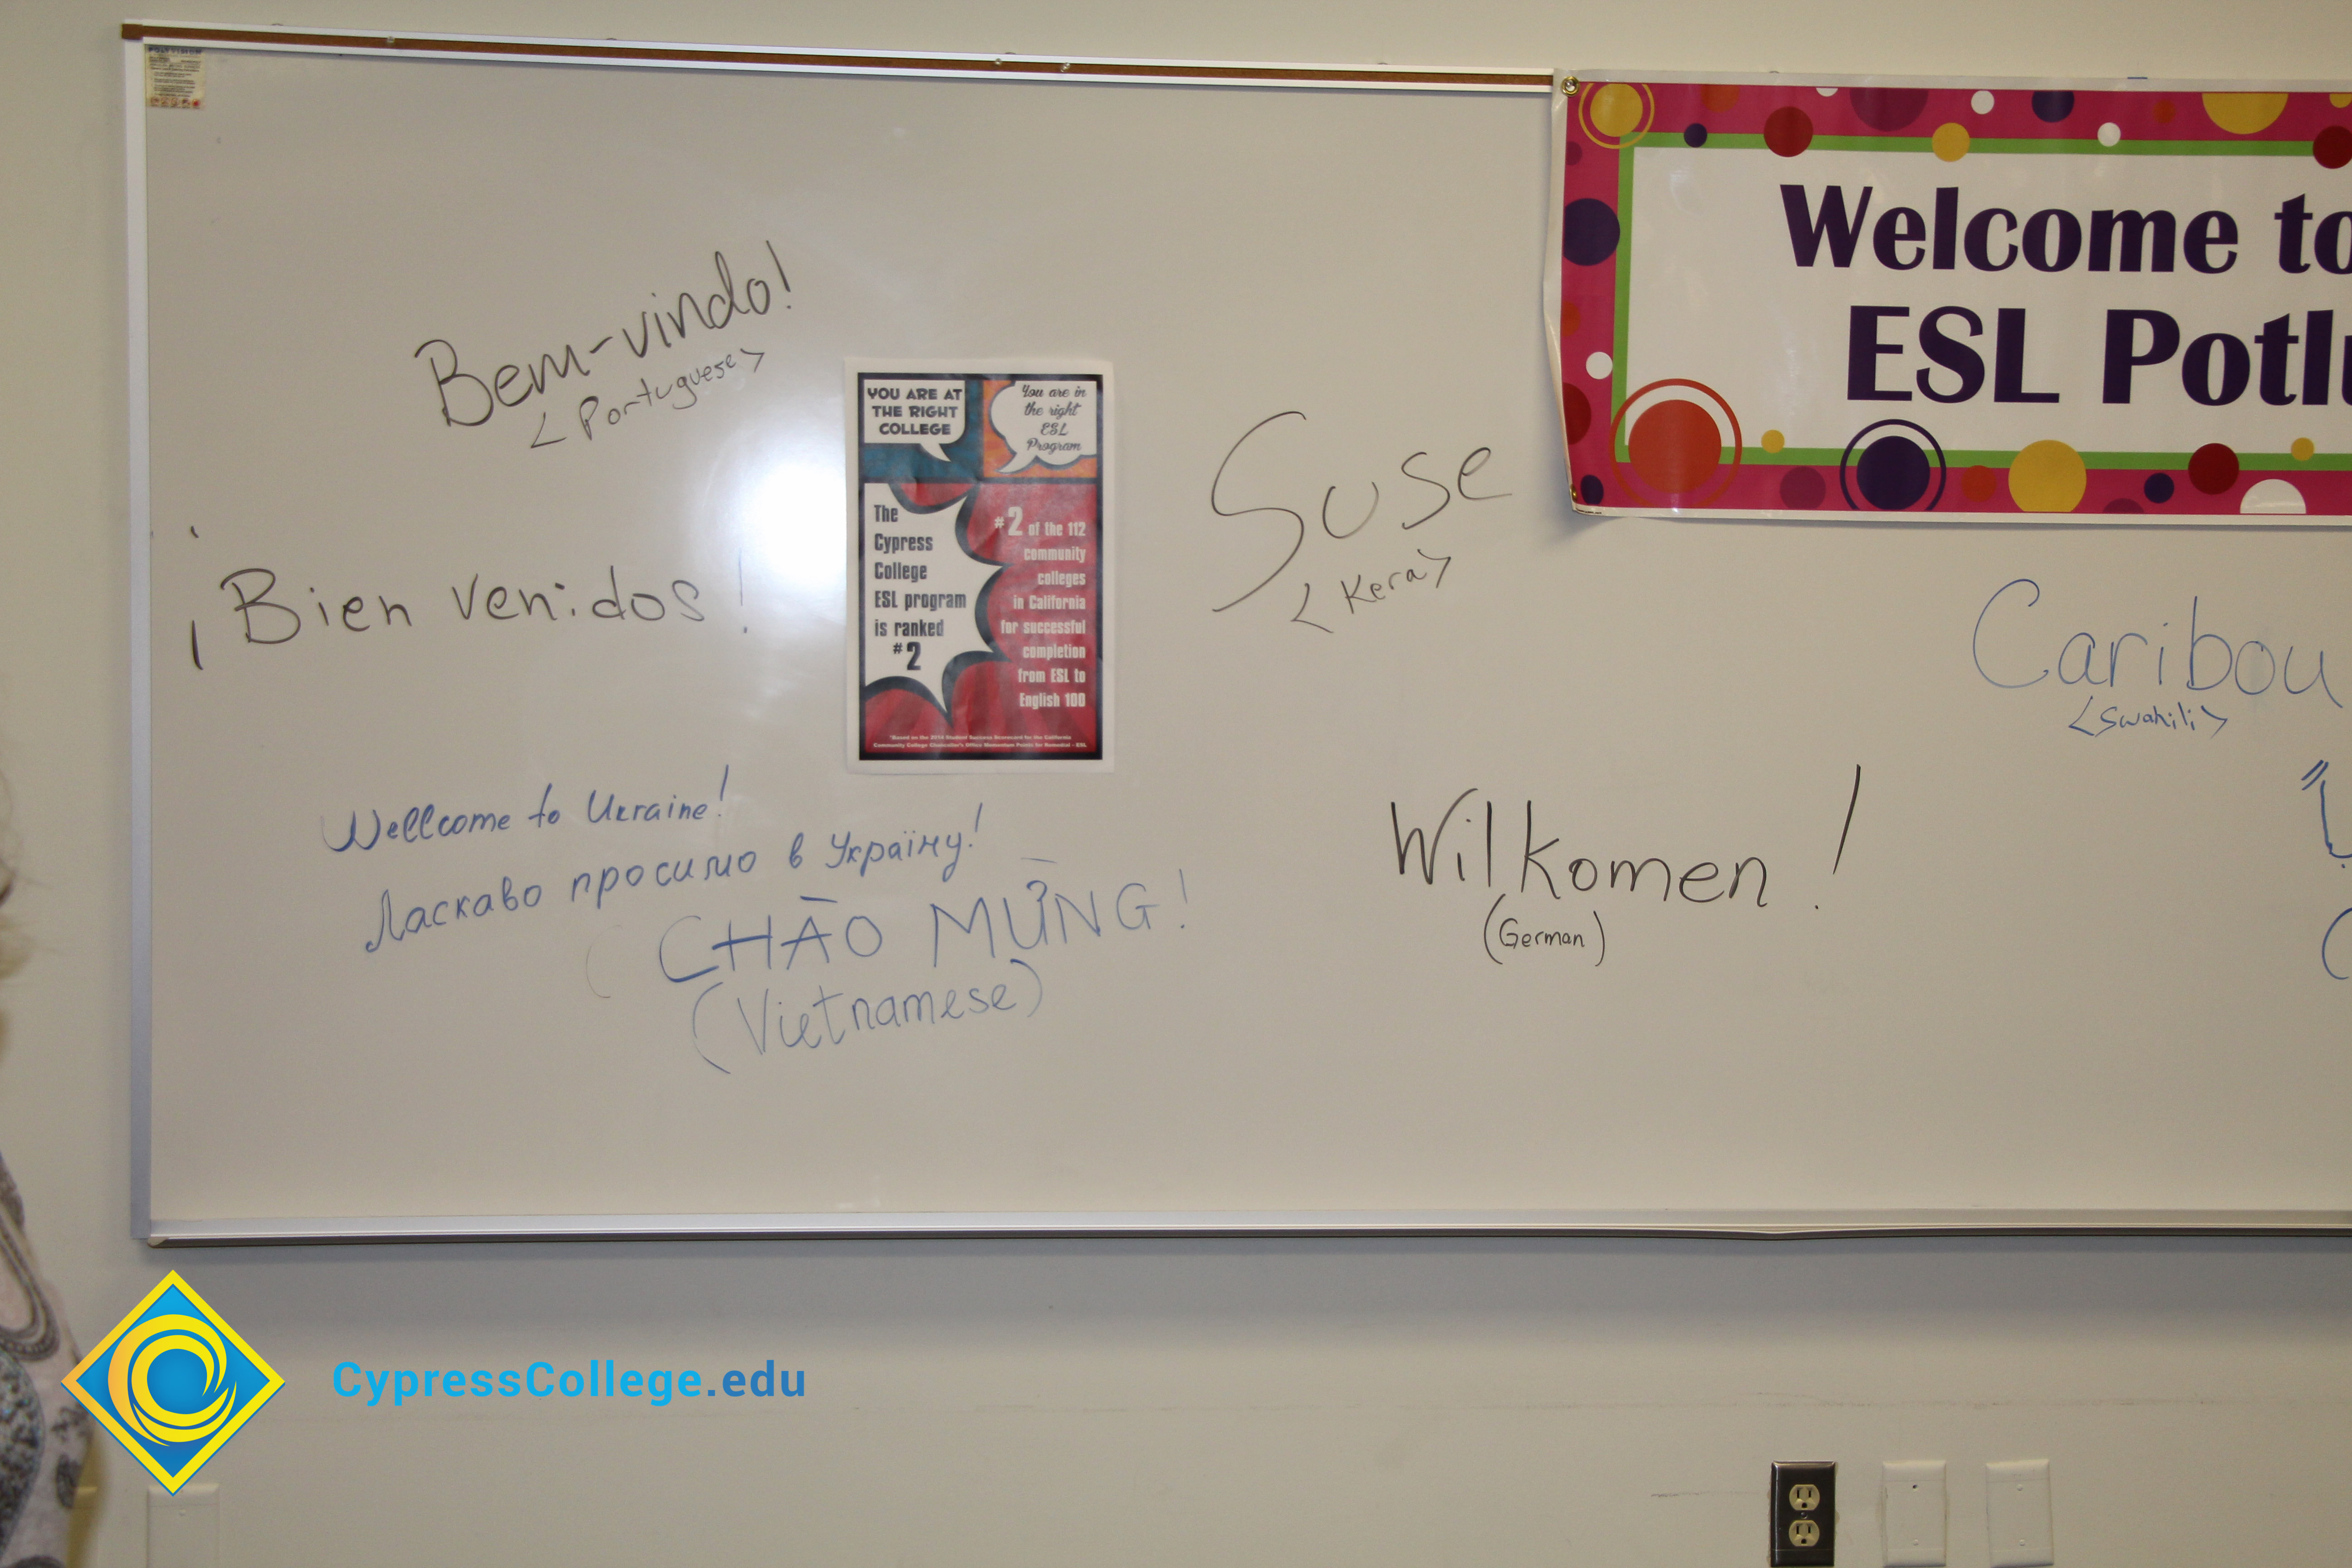 Welcome to
ESL Potlu
Bem-vindo!
<Portuguese>
YOU ARE AT
THE RIGHT
COLLEGE
You are in
the right
ESL
Program
The
Cypress
College
ESL program
is ranked
#2
#2 of the 112
community
colleges
in California
for successful
completion
from ESL to
English 100
*Based on the 2014 Student Success Scorecard for the California
Community College Chancellor's Office Momentum Points for Remedial - ESL
Suse
<Kera>
¡Bien venidos!
Caribou
<Swahili>
Wellcome to Ukraine!
Ласкаво просимо в Україну!
CHÀO MỪNG!
(Vietnamese)
Wilkomen!
(German)
CypressCollege.edu